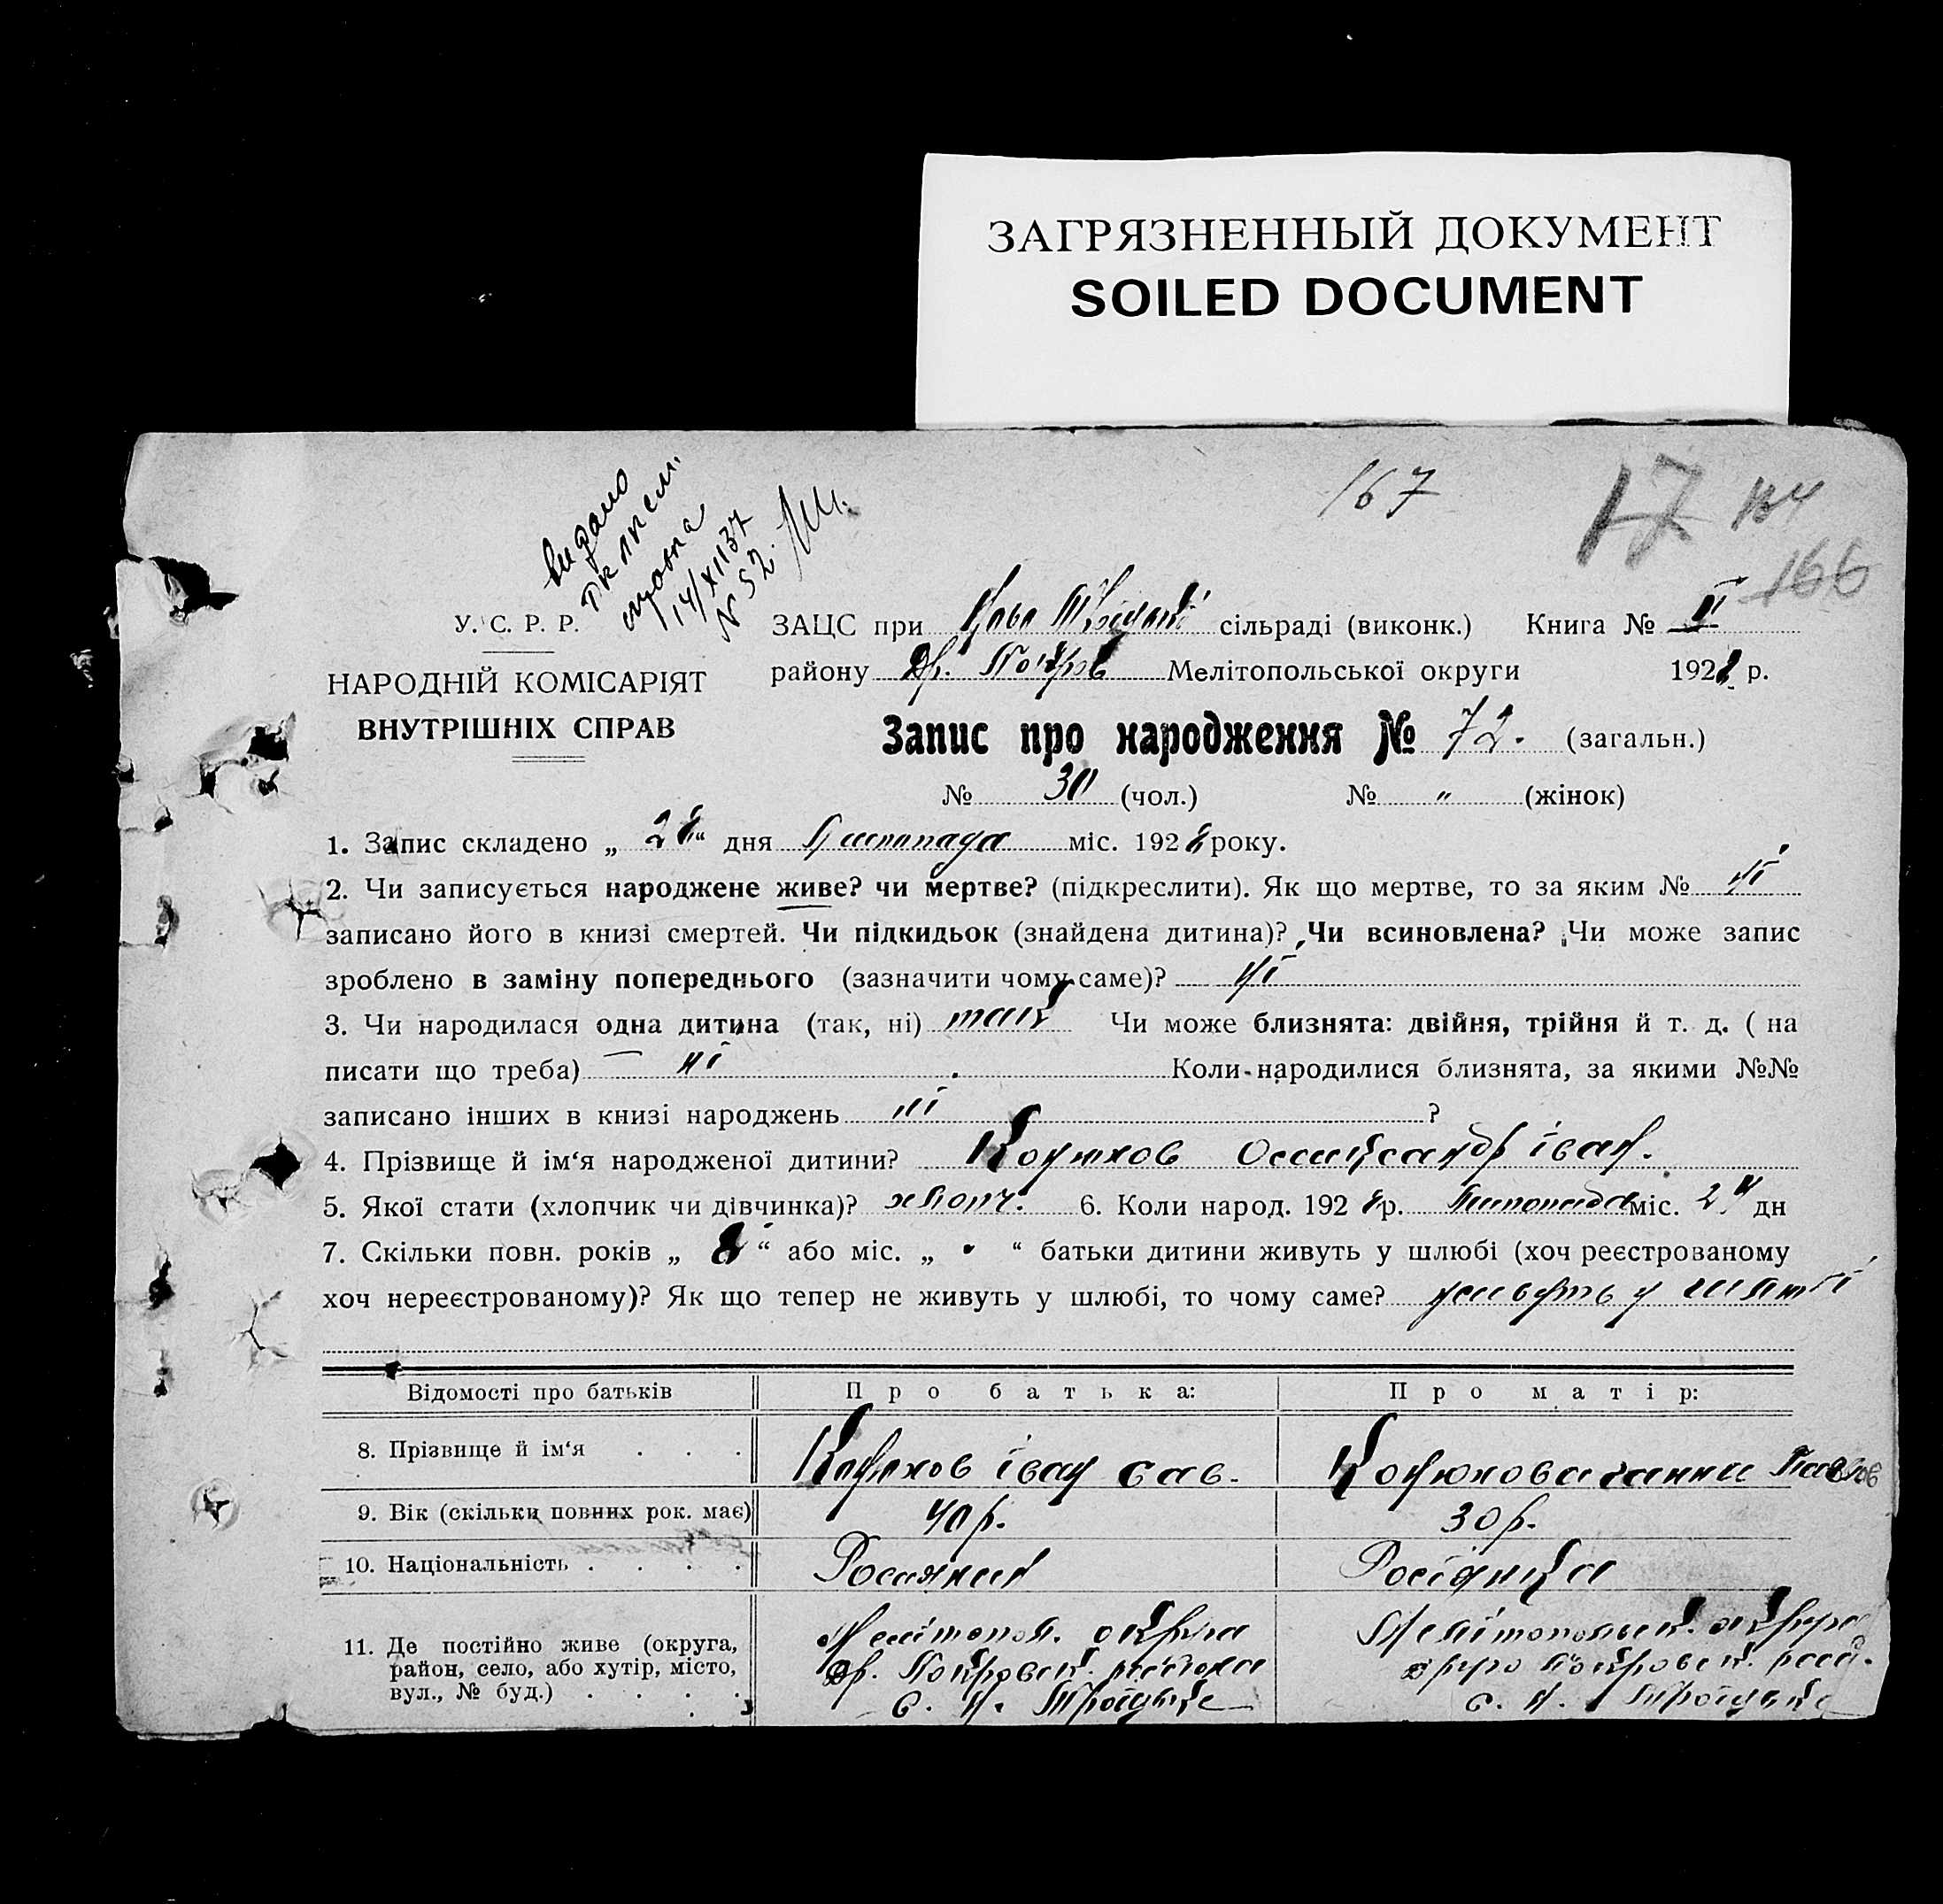 ЗАГРЯЗНЕННЫЙ ДОКУМЕНТ
SOILED DOCUMENT
167
17
166
видано
14/XII 37
N 52.
У. С. Р. Р.
НАРОДНІЙ КОМІСАРІЯТ
ВНУТРІШНІХ СПРАВ
ЗАЦС при сільраді (виконк.) Книга № II
району Др. Покров Мелітопольської округи 1928 р.
Запис про народження № 72. (загальн.)
№ 30 (чол.) № „ (жінок)
1. Запис складено „ 28 “ дня Листопада міс. 1928 року.
2. Чи записується народжене живе? чи мертве? (підкреслити). Як що мертве, то за яким № ні
записано його в книзі смертей. Чи підкидьок (знайдена дитина)? Чи всиновлена? Чи може запис
зроблено в заміну попереднього (зазначити чому саме)? ні
3. Чи народилася одна дитина (так, ні) так Чи може близнята: двійня, трійня й т. д. ( на
писати що треба) ні Коли народилися близнята, за якими №№
записано інших в книзі народжень ні ?
4. Прізвище й ім‘я народженої дитини? Конюхов Олександр іван.
5. Якої стати (хлопчик чи дівчинка)? хлопч. 6. Коли народ. 1928 р. Листопада міс. 24 дн
7. Скільки повн. років „ 8 “ або міс. „ “ батьки дитини живуть у шлюбі (хоч реєстрованому
хоч нереєстрованому)? Як що тепер не живуть у шлюбі, то чому саме? живуть у шлюбі
Відомості про батьків Про батька: Про матір:
8. Прізвище й ім‘я . . . Конюхов іван сав. Конюхова ганна Павлов
9. Вік (скільки повних рок. має) 40 р. 30 р.
10. Національність . . . . Росиянин Росіянка
11. Де постійно живе (округа, Мелітопол. округа Мелітопольськ. округа
район, село, або хутір, місто, Др. Покровськ. району друго Покровськ. рай.
вул., № буд.) . . . . с. Н. Троїцьке с. Н. Троїцьке